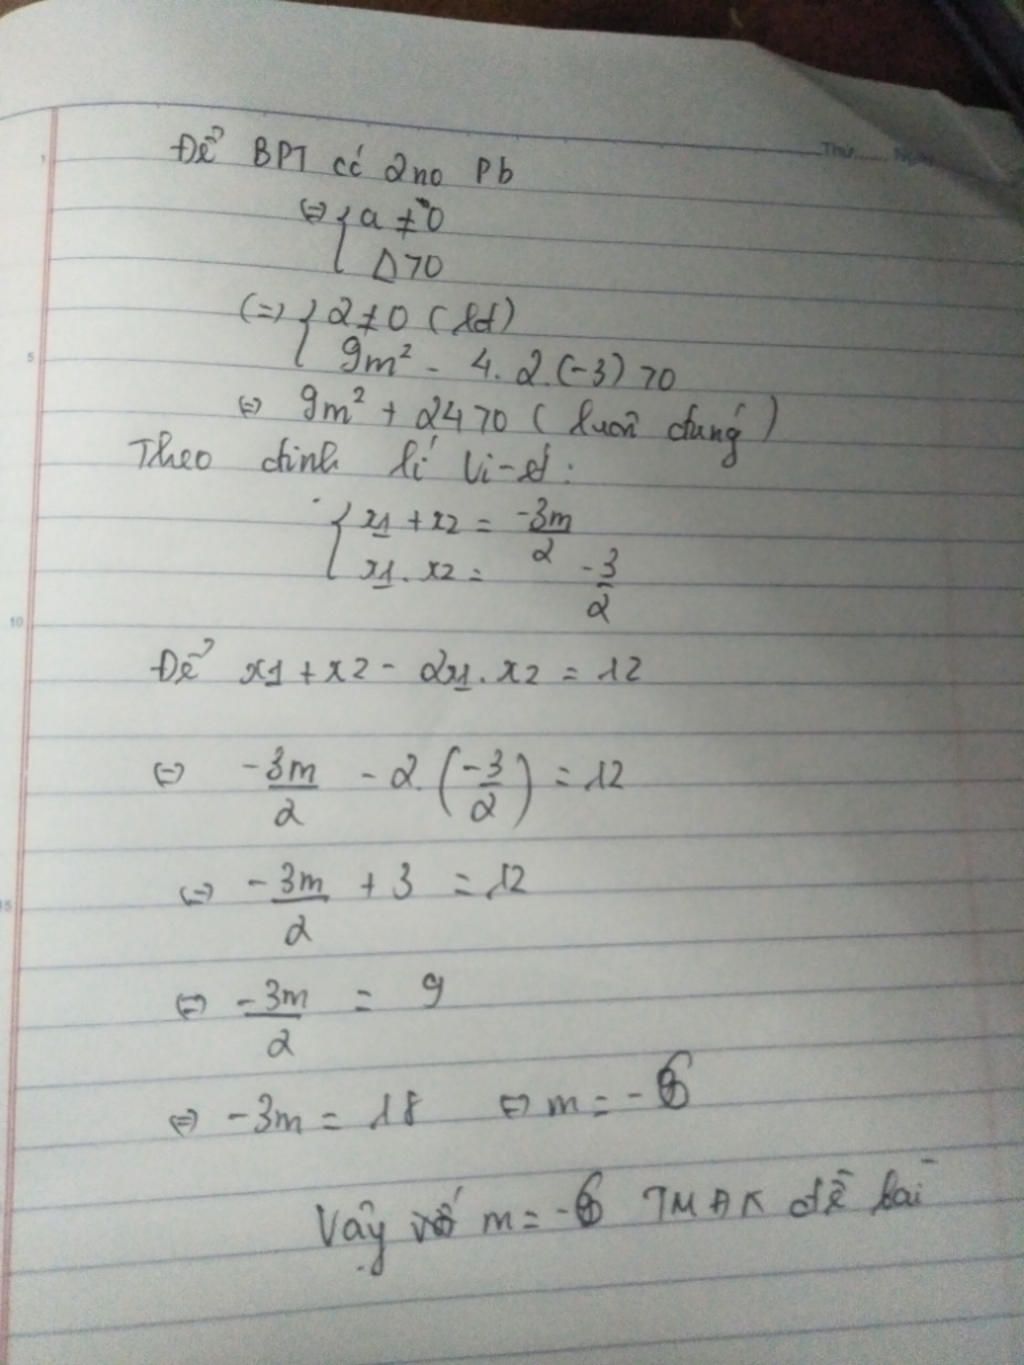 Thứ ...... Ngày
Để BPT có 2no Pb
⇔ { a ≠ 0
Δ > 0
(=) { 2 ≠ 0 (lđ)
9m² - 4.2.(-3) > 0
⇔ 9m² + 24 > 0 (luôn đúng)
Theo định lí Vi-ét:
{ x1 + x2 = -3m/2
x1 . x2 = -3/2
Để x1 + x2 - 2x1.x2 = 12
⇔ -3m/2 - 2.(-3/2) = 12
⇔ -3m/2 + 3 = 12
⇔ -3m/2 = 9
⇔ -3m = 18 ⇔ m = -6
Vậy với m = -6 TMĐK đề bài
5
10
15